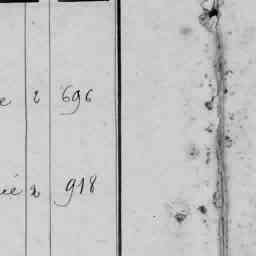 e 2 696
ié 2 918